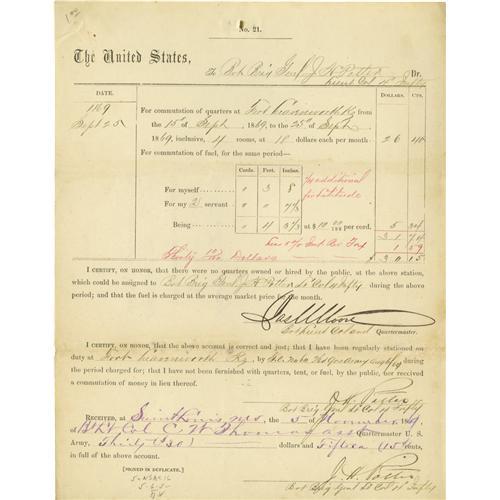 No. 21.
The United States,
To Bvt Brig Genl J H Potter Dr.
Lieut Col 4" Infty
DATE. DOLLARS CTS.
1869
Sept 25 For commutation of quarters at Fort Leavenworth Ks from
the 15" of Sept, 1869, to the 25" of Sept
1869, inclusive, 4 rooms, at 18 dollars each per month 26 40
For commutation of fuel, for the same period—
Cords. Feet. Inches.
For myself " 3 8
For my 2 servant " "
Being " 4 at $ per cord. 5 34
additional
for latitude
31 74
Less 5% Rev Tax 1 59
Thirty Dollars $ 30 15
I CERTIFY, ON HONOR, that there were no quarters owned or hired by the public, at the above station,
which could be assigned to Bvt Brig Genl J H Potter Lt Col 4 Infty during the above
period; and that the fuel is charged at the average market price for the month.
Jas M Moore
Quartermaster.
I CERTIFY, ON HONOR, that the above account is correct and just; that I have been regularly stationed on
duty at Fort Leavenworth Ks, by during the
period charged for; that I have not been furnished with quarters, tent, or fuel, by the public, nor received
a commutation of money in lieu thereof.
J. H. Potter
Bvt Brig Genl Lt Col 4" Infty
RECEIVED, at Saint Louis, Mo, the 5 of November, 1869,
of Bvt Col C W Thomas Quartermaster U. S.
Army, Thirty (30) dollars and Fifteen (15) cents,
in full of the above account.
[SIGNED IN DUPLICATE.]
J. H. Potter
Bvt Brig Genl Lt Col 4" Infty